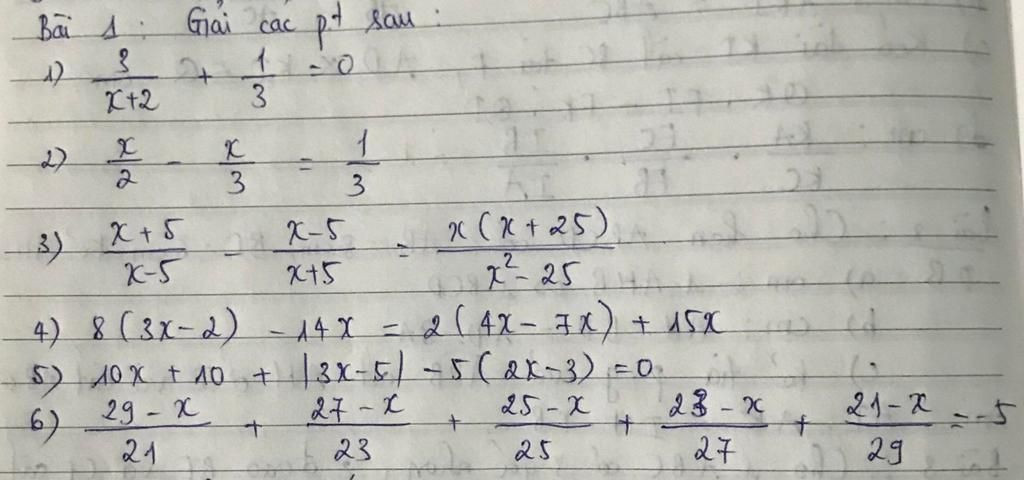 Bài 1 : Giải các pt sau :
1) 3/(x+2) + 1/3 = 0
2) x/2 - x/3 = 1/3
3) (x+5)/(x-5) - (x-5)/(x+5) = x(x+25)/(x²-25)
4) 8(3x-2) - 14x = 2(4x-7x) + 15x
5) 10x + 10 + |3x-5| - 5(2x-3) = 0
6) (29-x)/21 + (27-x)/23 + (25-x)/25 + (23-x)/27 + (21-x)/29 = -5